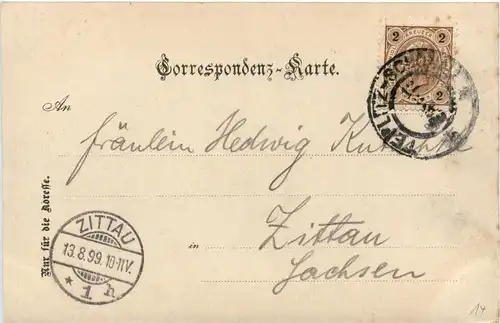 2 KREUZER 2
2 2
Correspondenz-Karte.
TEPLITZ-SCHÖNAU
An
Fräulein Hedwig
in Zittau
Sachsen
Nur für die Adresse.
ZITTAU
13.8.99. 10-11V.
* 1 h
14